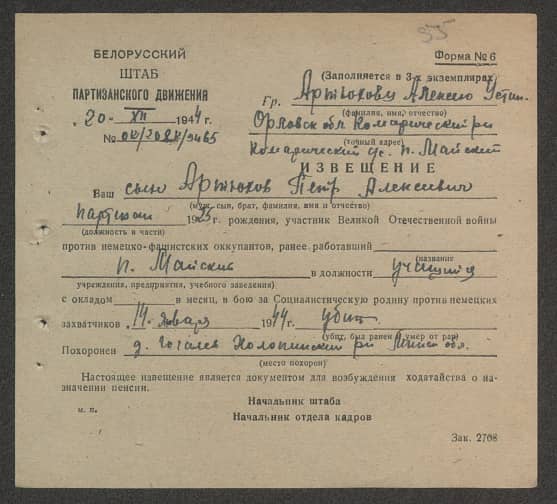 355
БЕЛОРУССКИЙ
ШТАБ
ПАРТИЗАНСКОГО ДВИЖЕНИЯ
"20" XII 1944 г.
№
Форма № 6
(Заполняется в 3-х экземплярах)
Гр. Артюхову Алексею Устин.
(фамилия, имя, отчество)
Орловск обл Комаричский р-н
(точный адрес)
Комаричский с/с. п. Майский
ИЗВЕЩЕНИЕ
Ваш сын Артюхов Петр Алексеевич
(муж, сын, брат, фамилия, имя и отчество)
партизан 1925 г. рождения, участник Великой Отечественной войны
(должность и части)
против немецко-фашистских оккупантов, ранее работавший
(название
п. Майский в должности учащийся
учреждения, предприятия, учебного заведения)
с окладом в месяц, в бою за Социалистическую родину против немецких
захватчиков "14" января 1944 г. убит
(убит, был ранен и умер от ран)
Похоронен д. Холопинский р-н обл.
(место похорон)
Настоящее извещение является документом для возбуждения ходатайства о на-
значении пенсии.
Начальник штаба
м. п.
Начальник отдела кадров
Зак. 2708